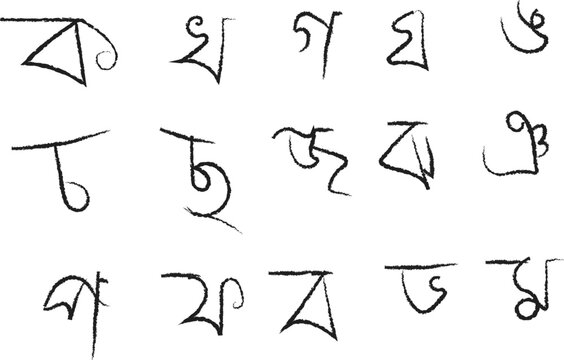 ক খ গ ঘ ঙ
চ ছ জ ঝ ঞ
প ফ ব ভ ম